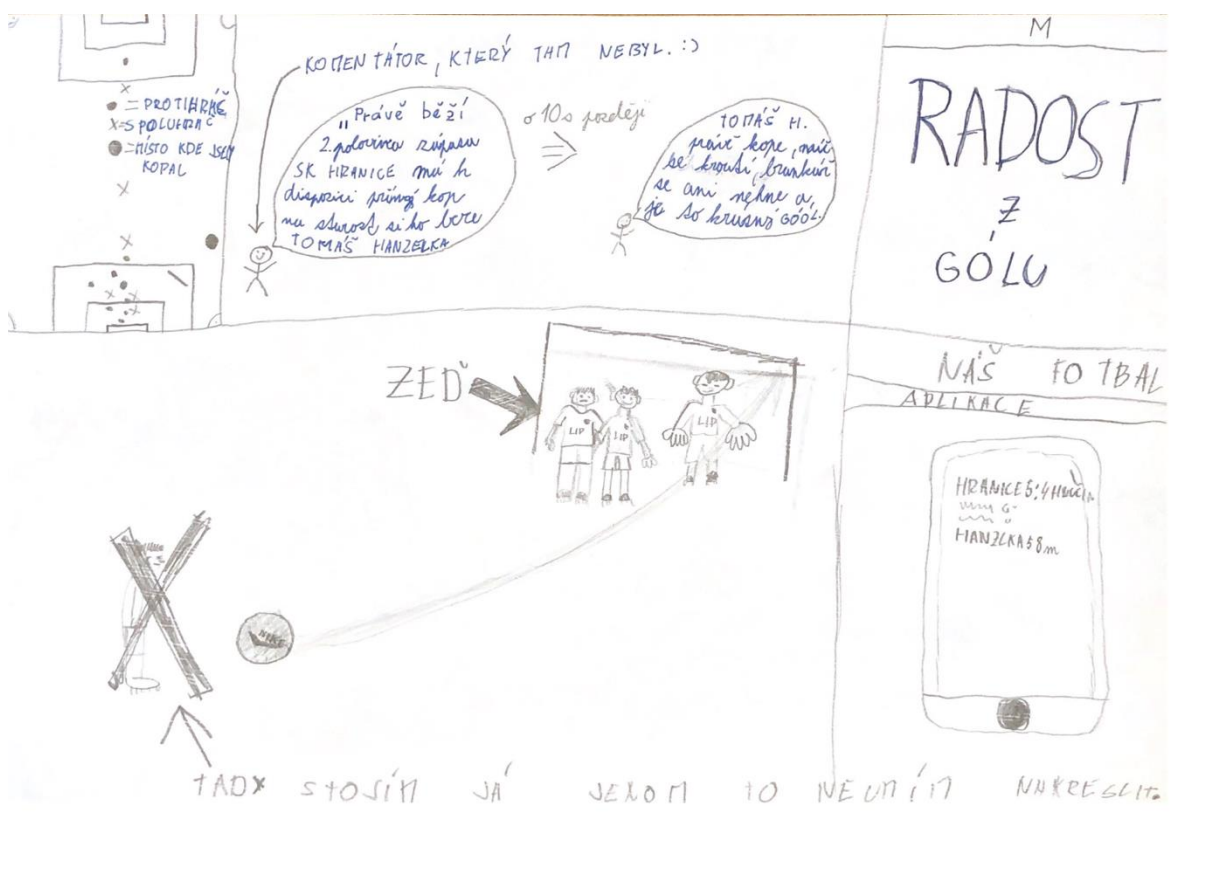 ● = PROTIHRÁČ
X=SPOLUHRÁČ
● =MÍSTO KDE JSEM
KOPAL
KOMENTÁTOR, KTERÝ TAM NEBYL. :)
"Právě běží
2. polovina zápasu
SK HRANICE má k
dispozici přímý kop
na starost si ho bere
TOMÁŠ HANZELKA
o 10s později
TOMÁŠ H.
právě kope, míč
se kroutí, brankář
se ani nehne a
je to krásný GÓÓL.
M
RADOST
Z
GÓLU
ZEĎ
LIP
LIP
LIP
NIKE
NÁŠ FOTBAL
APLIKACE
HRANICE 5:4
HANZLKA 58m
TADY STOJÍM JÁ JENOM TO NEUMÍM NAKRESLIT.